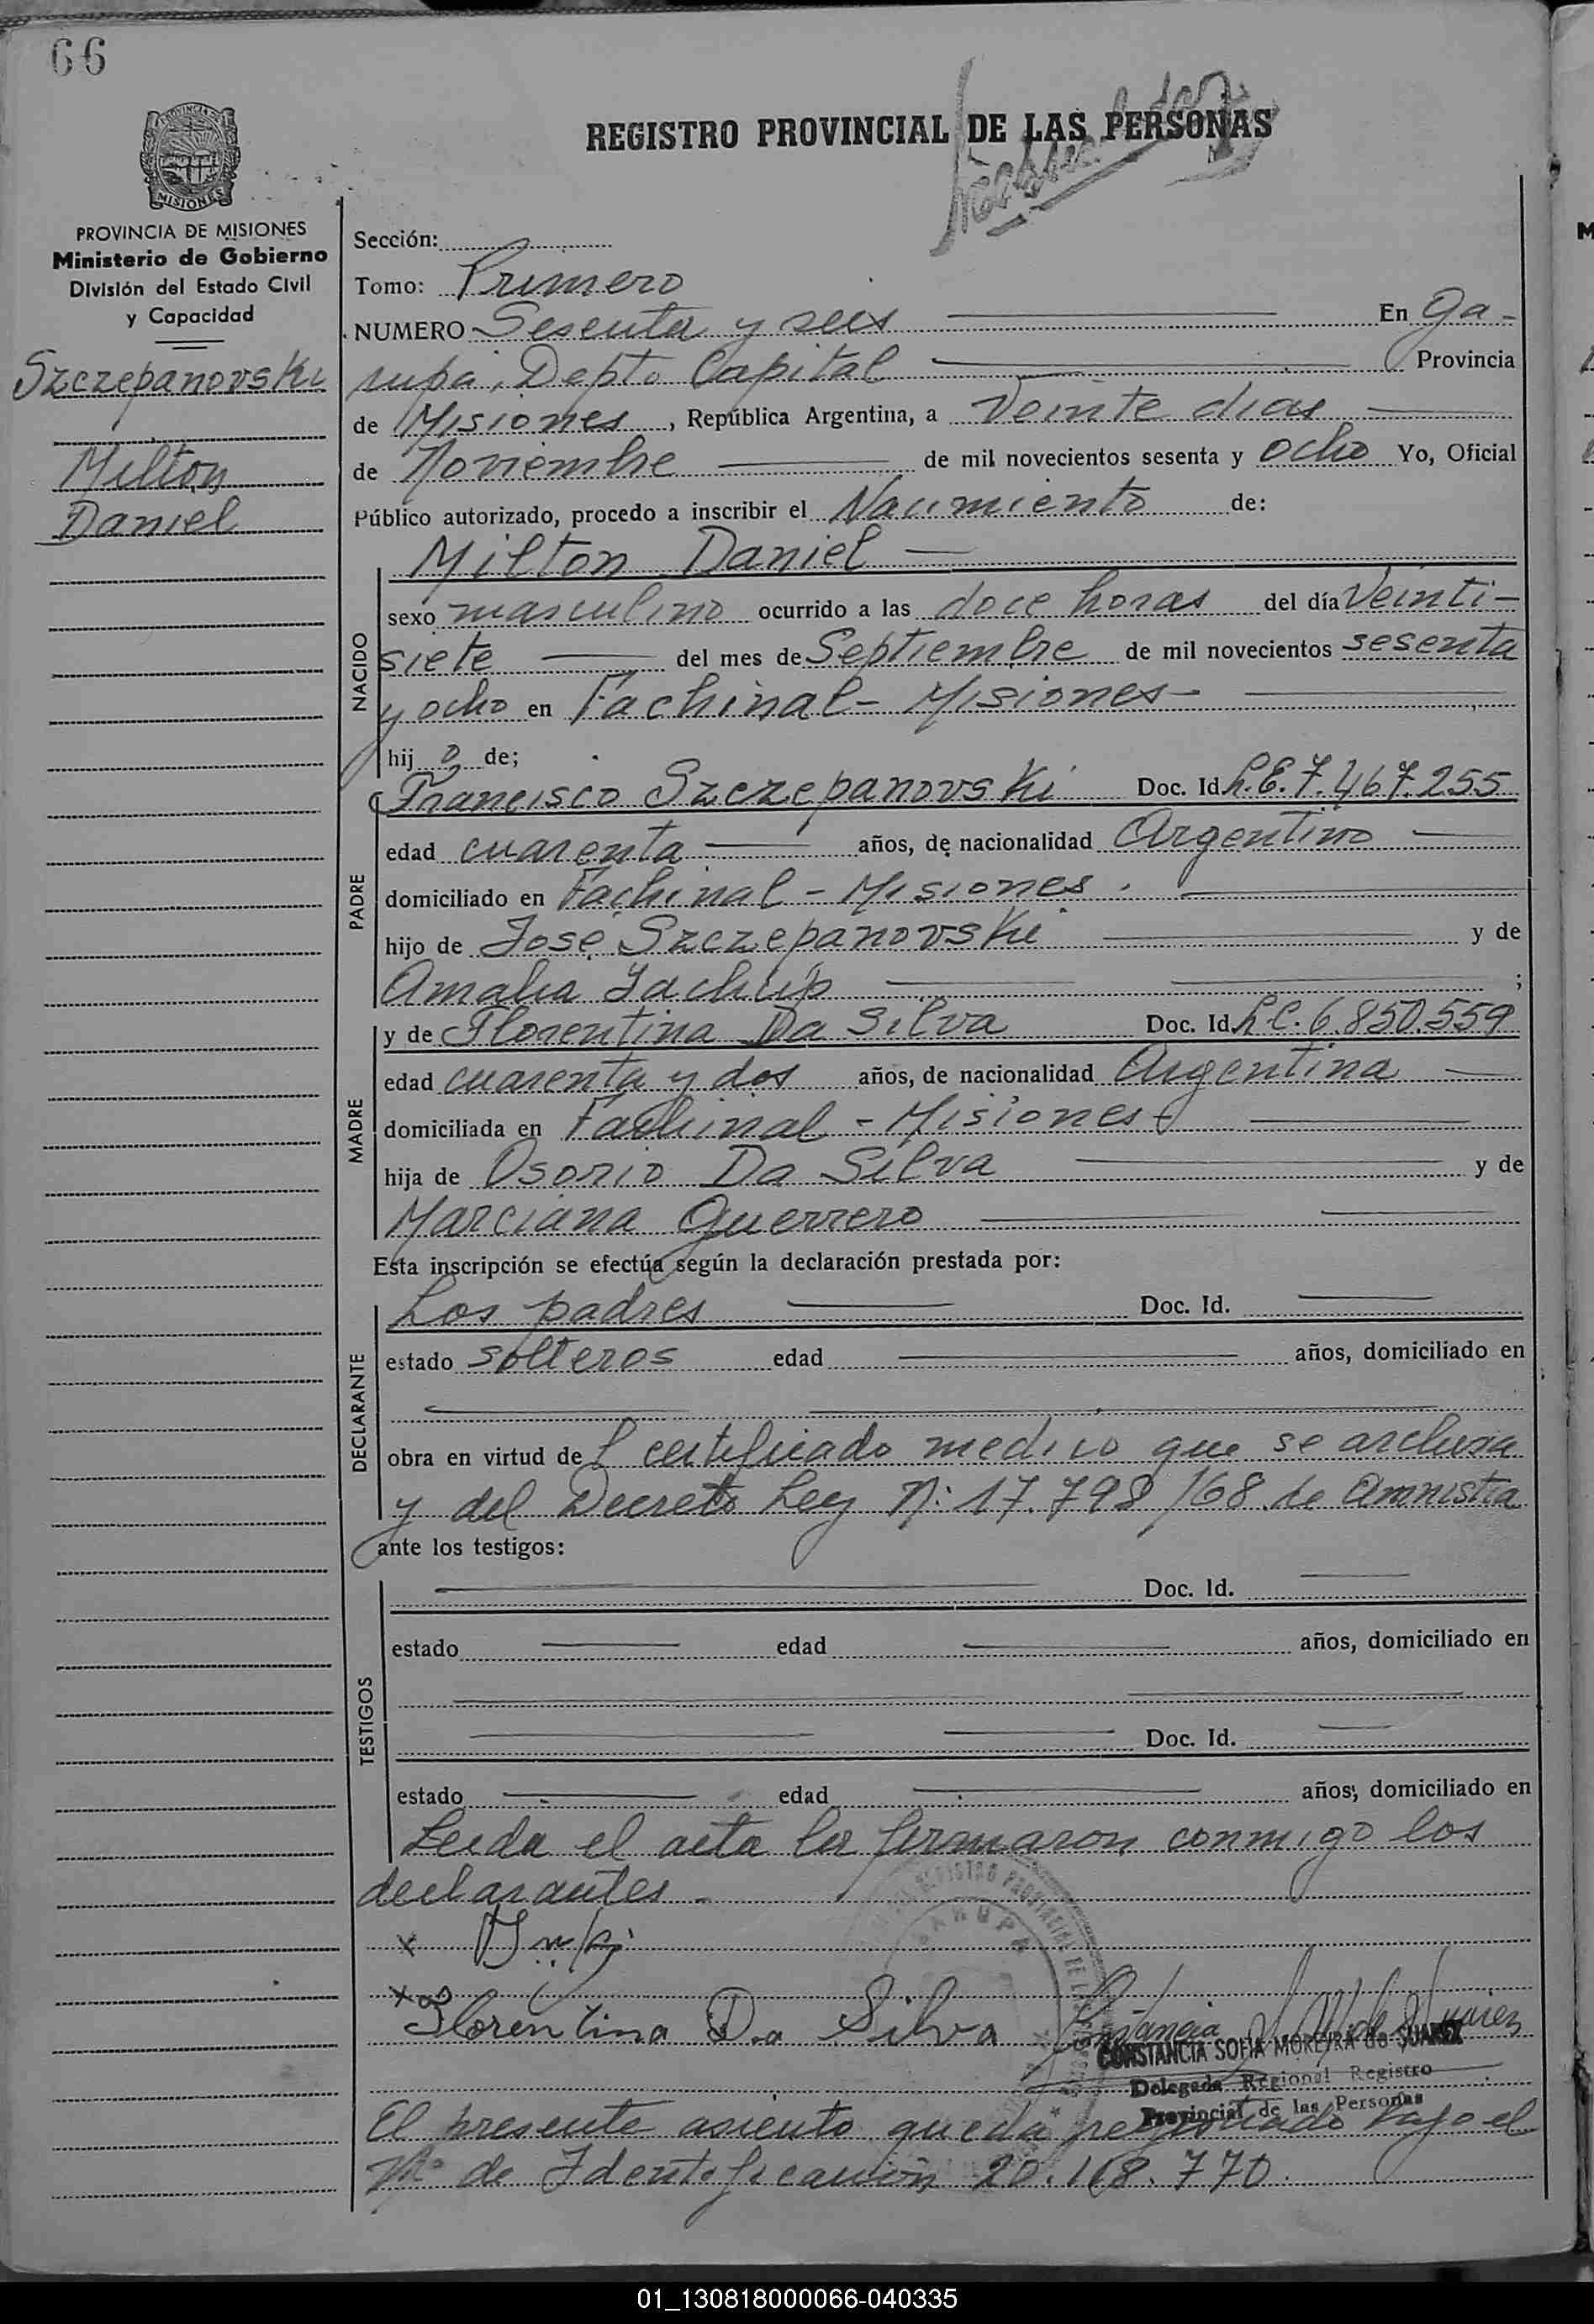 66
PROVINCIA DE
MISIONES
REGISTRO PROVINCIAL DE LAS PERSONAS
PROVINCIA DE MISIONES
Ministerio de Gobierno
División del Estado Civil
y Capacidad
Szczepanovski
Milton
Daniel
Sección:
Tomo: Primero
NUMERO Sesenta y seis En Ga-
rupá, Depto Capital Provincia
de Misiones, República Argentina, a Veinte dias
de Noviembre de mil novecientos sesenta y ocho Yo, Oficial
Público autorizado, procedo a inscribir el Nacimiento de:
Milton Daniel
NACIDO
sexo masculino ocurrido a las doce horas del día Veinti-
siete del mes de Septiembre de mil novecientos sesenta
y ocho en Fachinal - Misiones -
hij o de;
PADRE
Francisco Szczepanovski Doc. Id. L.E. 7.467.255
edad cuarenta años, de nacionalidad Argentino
domiciliado en Fachinal - Misiones.
hijo de José Szczepanovski y de
Amalia ;
MADRE
y de Florentina Da Silva Doc. Id. L.C. 6.850.559
edad cuarenta y dos años, de nacionalidad Argentina
domiciliada en Fachinal - Misiones
hija de Osorio Da Silva y de
Marciana Guerrero
Esta inscripción se efectúa según la declaración prestada por:
DECLARANTE
Los padres Doc. Id.
estado solteros edad años, domiciliado en
obra en virtud de l certificado medico que se archiva
y del Decreto Ley N: 17.798/68 de amnistia
ante los testigos:
TESTIGOS
Doc. Id.
estado edad años, domiciliado en
Doc. Id.
estado edad años, domiciliado en
Leida el acta la firmaron conmigo los
declarantes -
x
x Florentina Da Silva
REGISTRO PROVINCIAL DE LAS
GARUPA
CONSTANCIA SOFIA MOREIRA de SUAREZ
Delegada Regional Registro
Provincial de las Personas
El presente asiento queda registrado bajo el
Nº de Identificación 20.168.770.
01_130818000066-040335